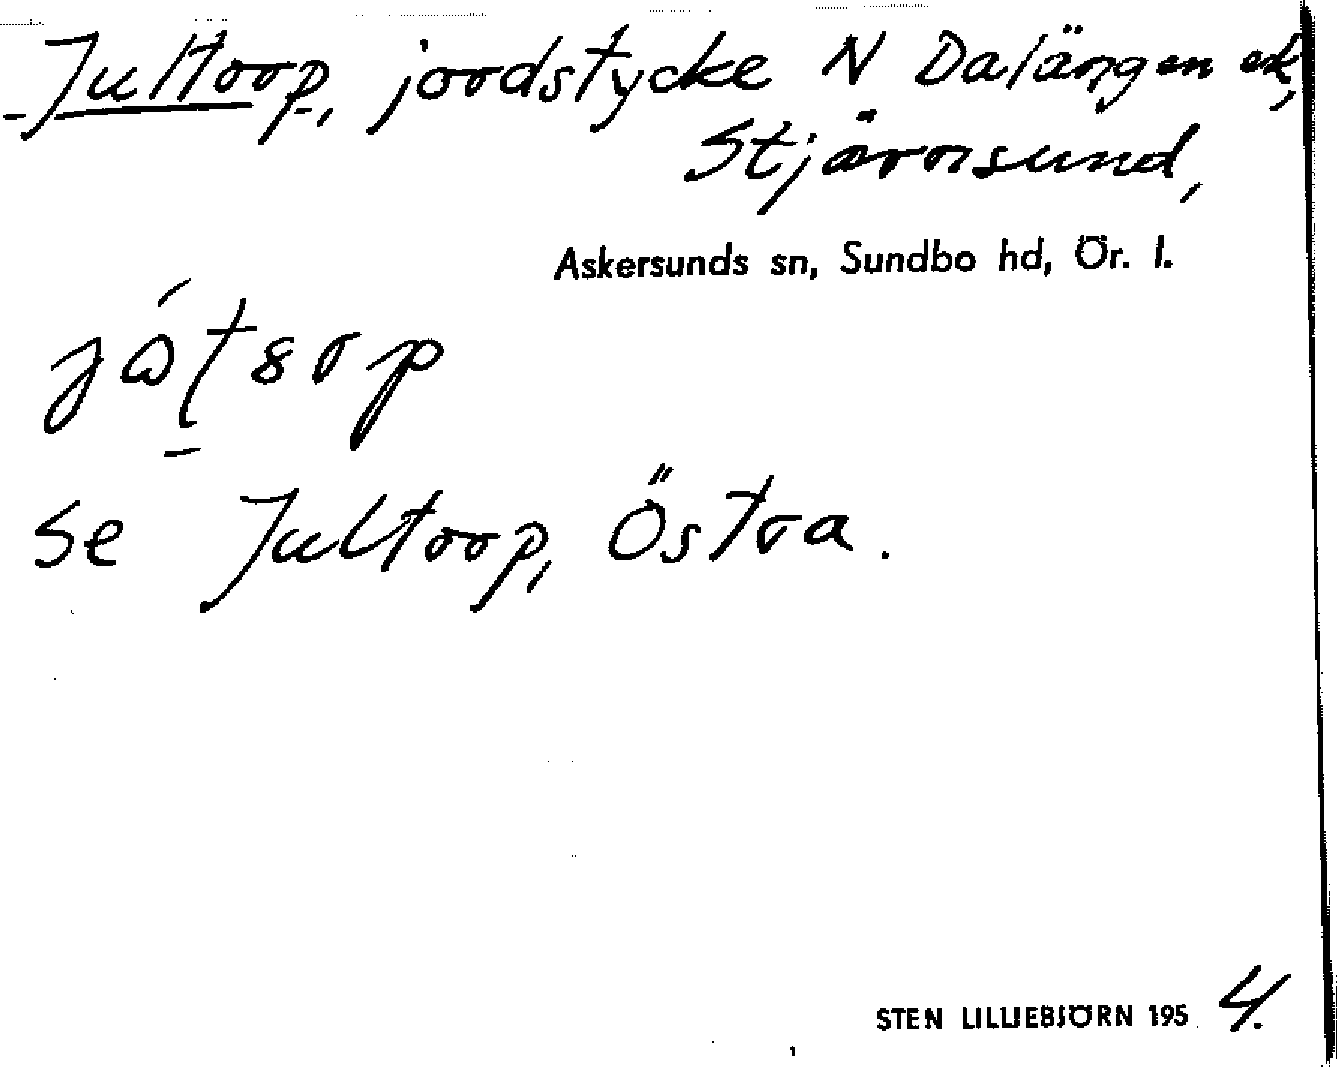 Jultorp, jordstycke N Dalängen ek,
Stjärnsund,
Askersunds sn, Sundbo hd, Ör. l.
Se Jultorp, Östra.
STEN LILLIEBJÖRN 1954.